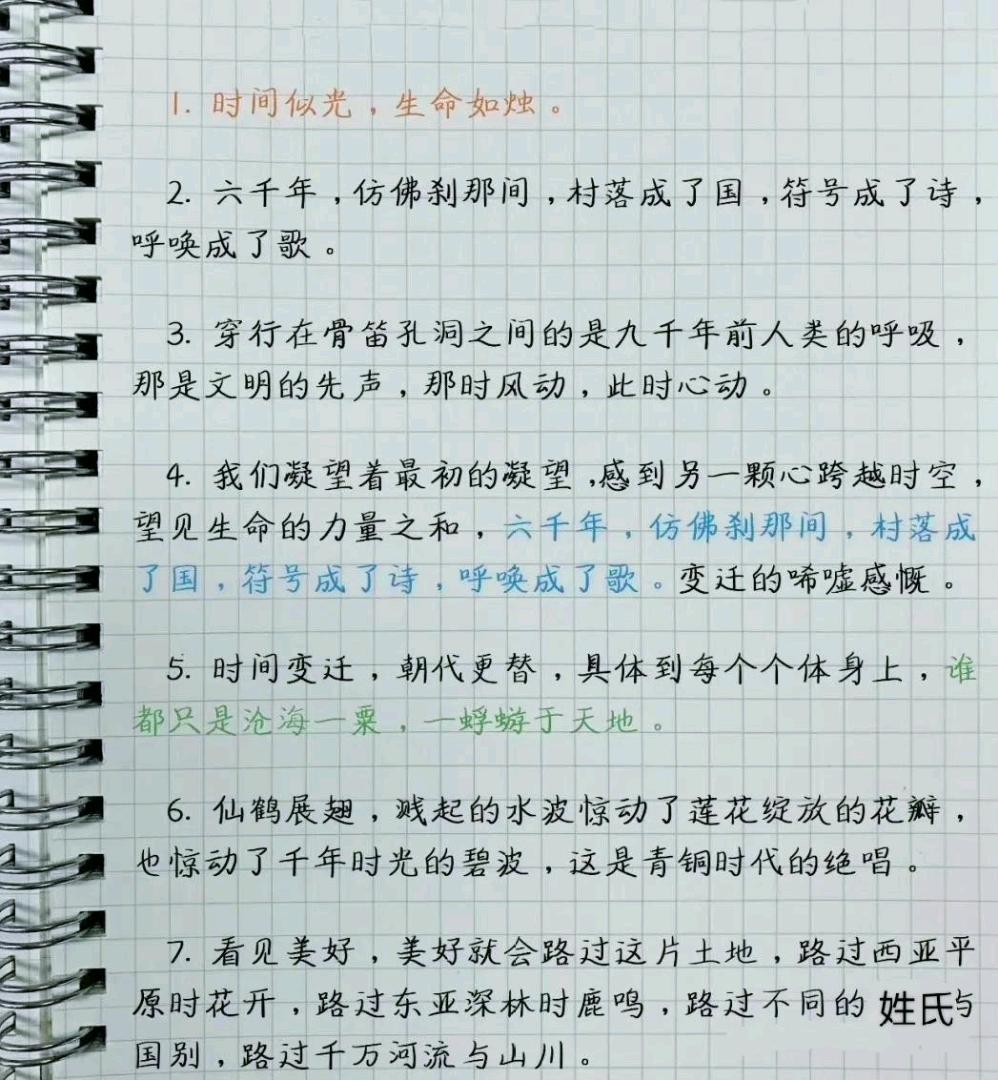 1. 时间似光，生命如烛。
2. 六千年，仿佛刹那间，村落成了国，符号成了诗，
呼唤成了歌。
3. 穿行在骨笛孔洞之间的是九千年前人类的呼吸，
那是文明的先声，那时风动，此时心动。
4. 我们凝望着最初的凝望，感到另一颗心跨越时空，
望见生命的力量之和，六千年，仿佛刹那间，村落成
了国，符号成了诗，呼唤成了歌。变迁的唏嘘感慨。
5. 时间变迁，朝代更替，具体到每个个体身上，谁
都只是沧海一粟，一蜉蝣于天地。
6. 仙鹤展翅，溅起的水波惊动了莲花绽放的花瓣，
也惊动了千年时光的碧波，这是青铜时代的绝唱。
7. 看见美好，美好就会路过这片土地，路过西亚平
原时花开，路过东亚深林时鹿鸣，路过不同的姓氏与
国别，路过千万河流与山川。